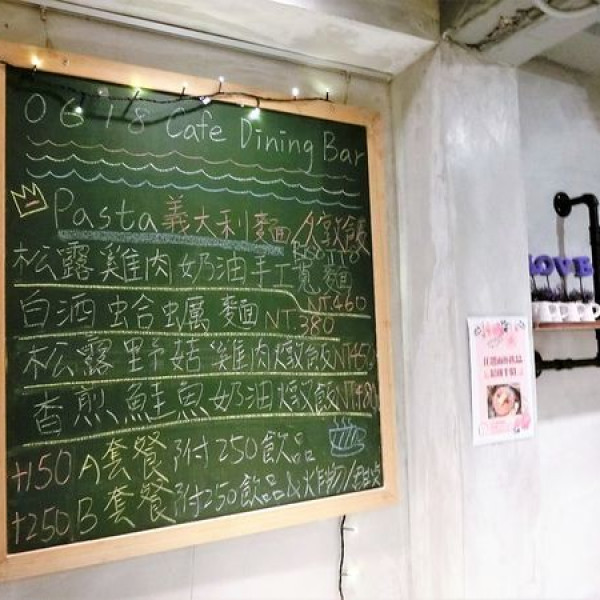 0618 Cafe Dining Bar
Pasta 義大利麵/燉飯
Risotto
松露雞肉奶油手工寬麵
NT.460
白酒蛤蠣麵 NT.380
松露野菇雞肉燉飯
香煎鮭魚奶油燉飯
+150 A套餐 附250飲品
+250 B套餐 附250飲品&炸物/甜點
LOVE